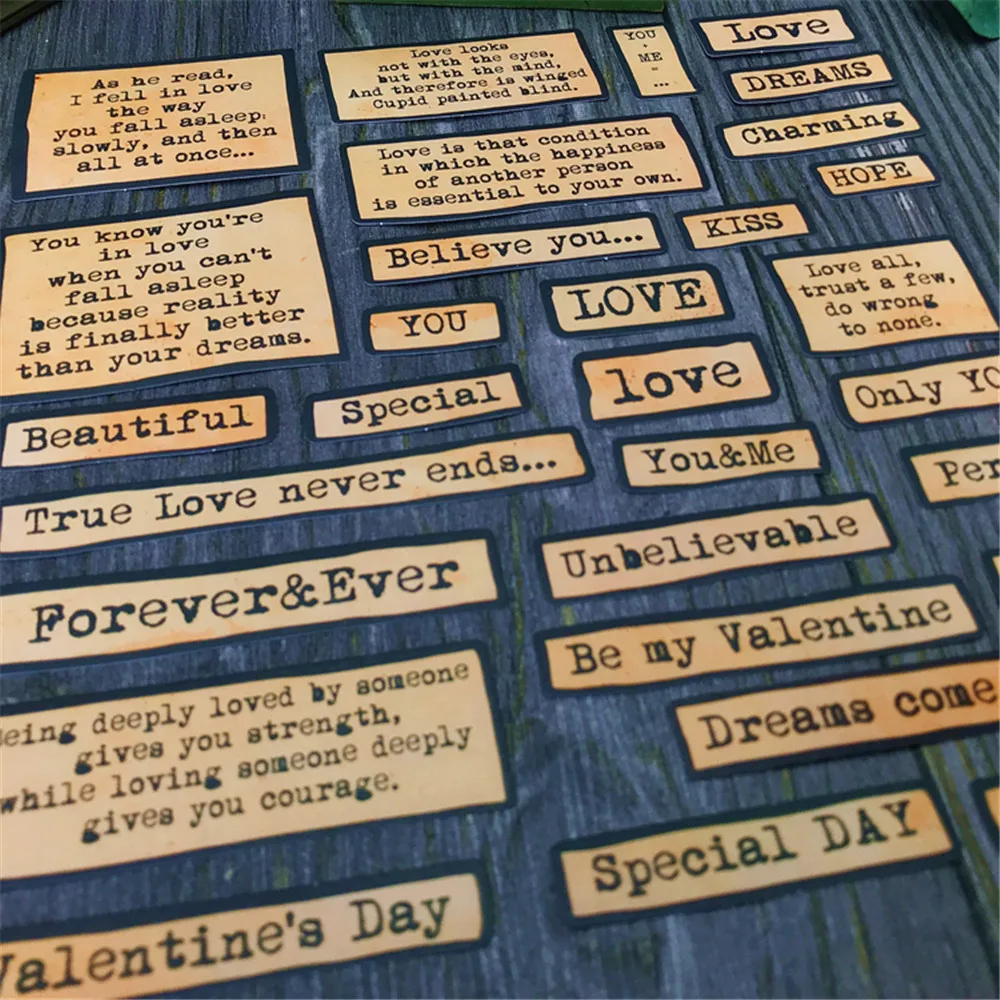 As he read,
I fell in love
the way
you fall asleep:
slowly, and then
all at once...
Love looks
not with the eyes,
but with the mind,
And therefore is winged
Cupid painted blind.
YOU
+
ME
=
...
Love
DREAMS
Charming
HOPE
Love is that condition
in which the happiness
of another person
is essential to your own.
KISS
Believe you...
You know you're
in love
when you can't
fall asleep
because reality
is finally better
than your dreams.
YOU
LOVE
Love all,
trust a few,
do wrong
to none.
love
Only YO
Beautiful
Special
You&Me
Per
True Love never ends...
Unbelievable
Forever&Ever
Be my Valentine
Dreams come
eing deeply loved by someone
gives you strength,
while loving someone deeply
gives you courage.
Special DAY
Valentine's Day